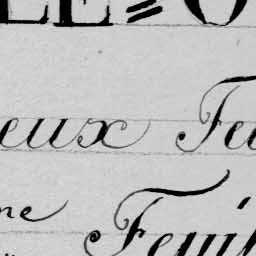 LE = O
eux Feu
me Feuil